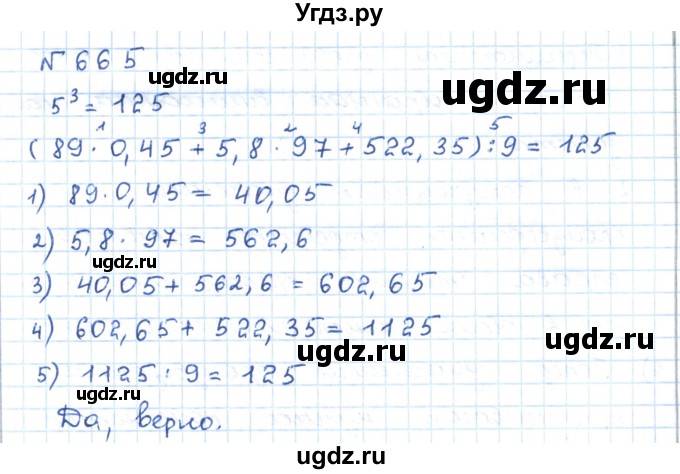 Угдз.ру
№ 665
ugdz.ru
5³ = 125
ugdz.ru
1 3 2 4 5
(89 · 0,45 + 5,8 · 97 + 522,35) : 9 = 125
1) 89 · 0,45 = 40,05
2) 5,8 · 97 = 562,6
ugdz.ru
3) 40,05 + 562,6 = 602,65
4) 602,65 + 522,35 = 1125
ugdz.ru
ugdz.ru
5) 1125 : 9 = 125
ugdz.ru
Да, верно.